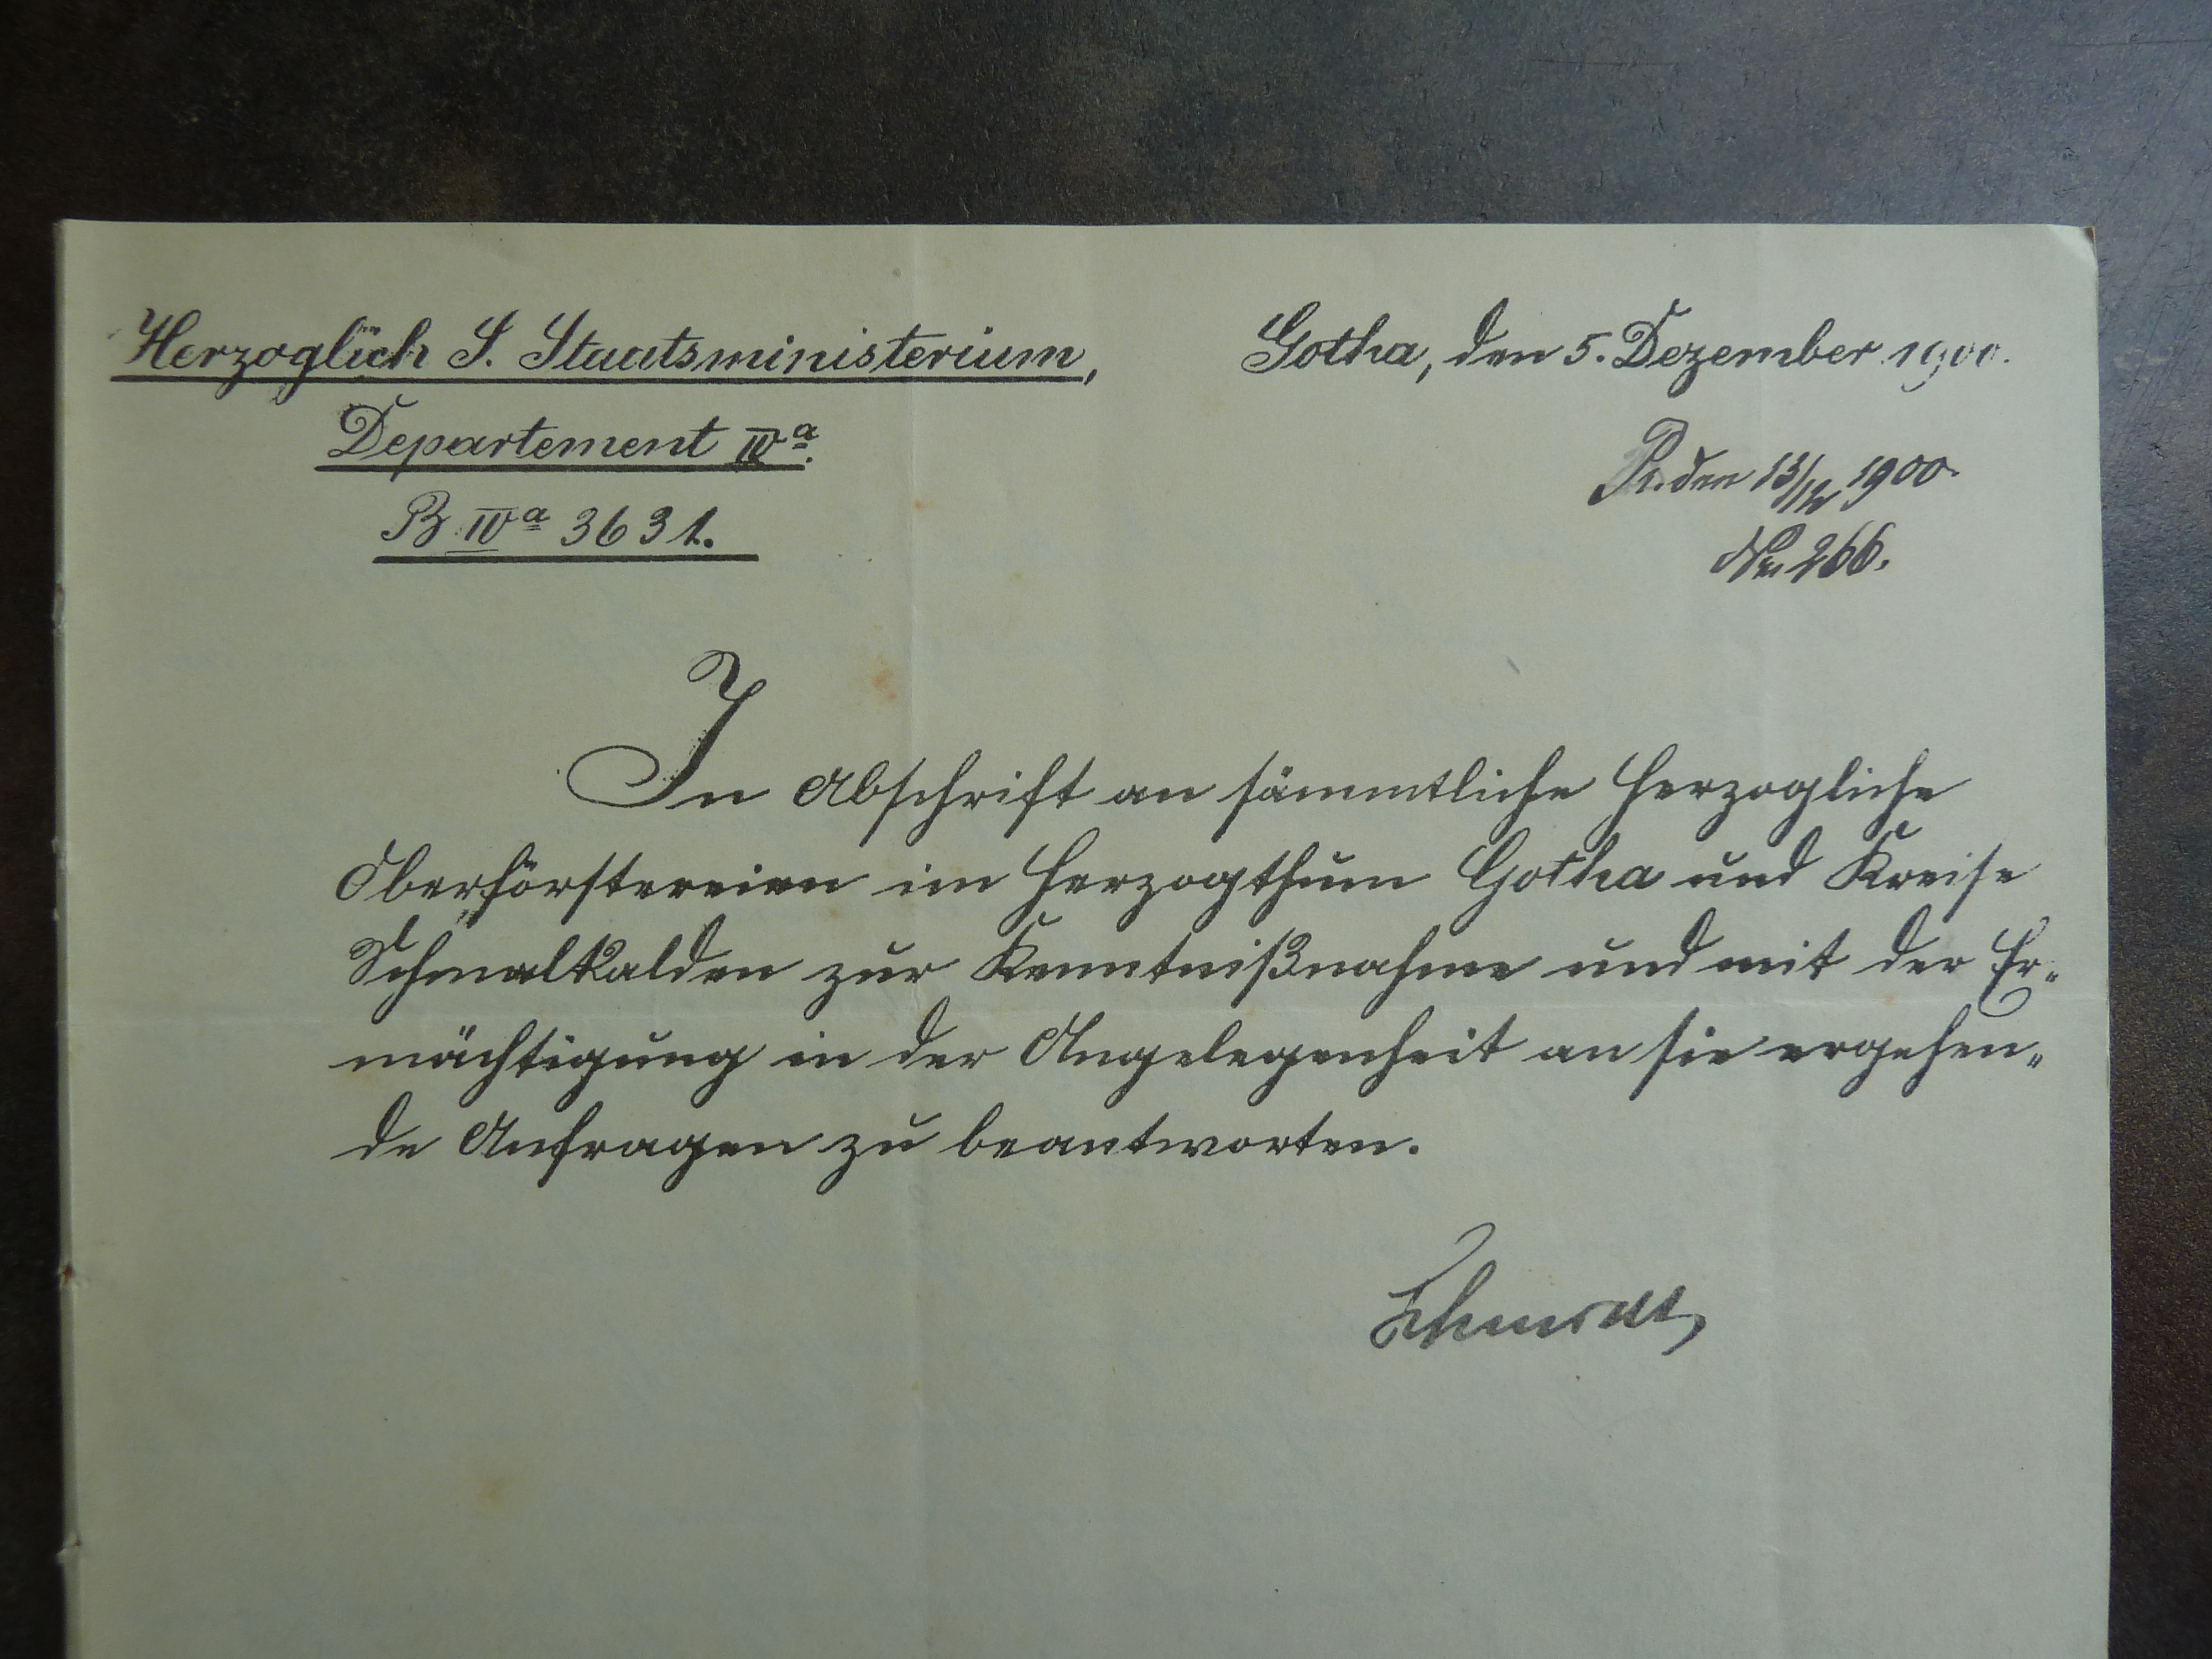 Herzoglich S. Staatsministerium,
Departement IVa.
B IVa 3631.
Gotha, den 5. Dezember 1900.
Pr. den 13/12 1900.
No. 266.
In Abschrift an sämmtliche Herzogliche
Oberförstereien im Herzogthum Gotha und Kreise
Schmalkalden zur Kenntnißnahme und mit der Er-
mächtigung in der Angelegenheit an sie ergehen-
de Anfragen zu beantworten.
Schmidt